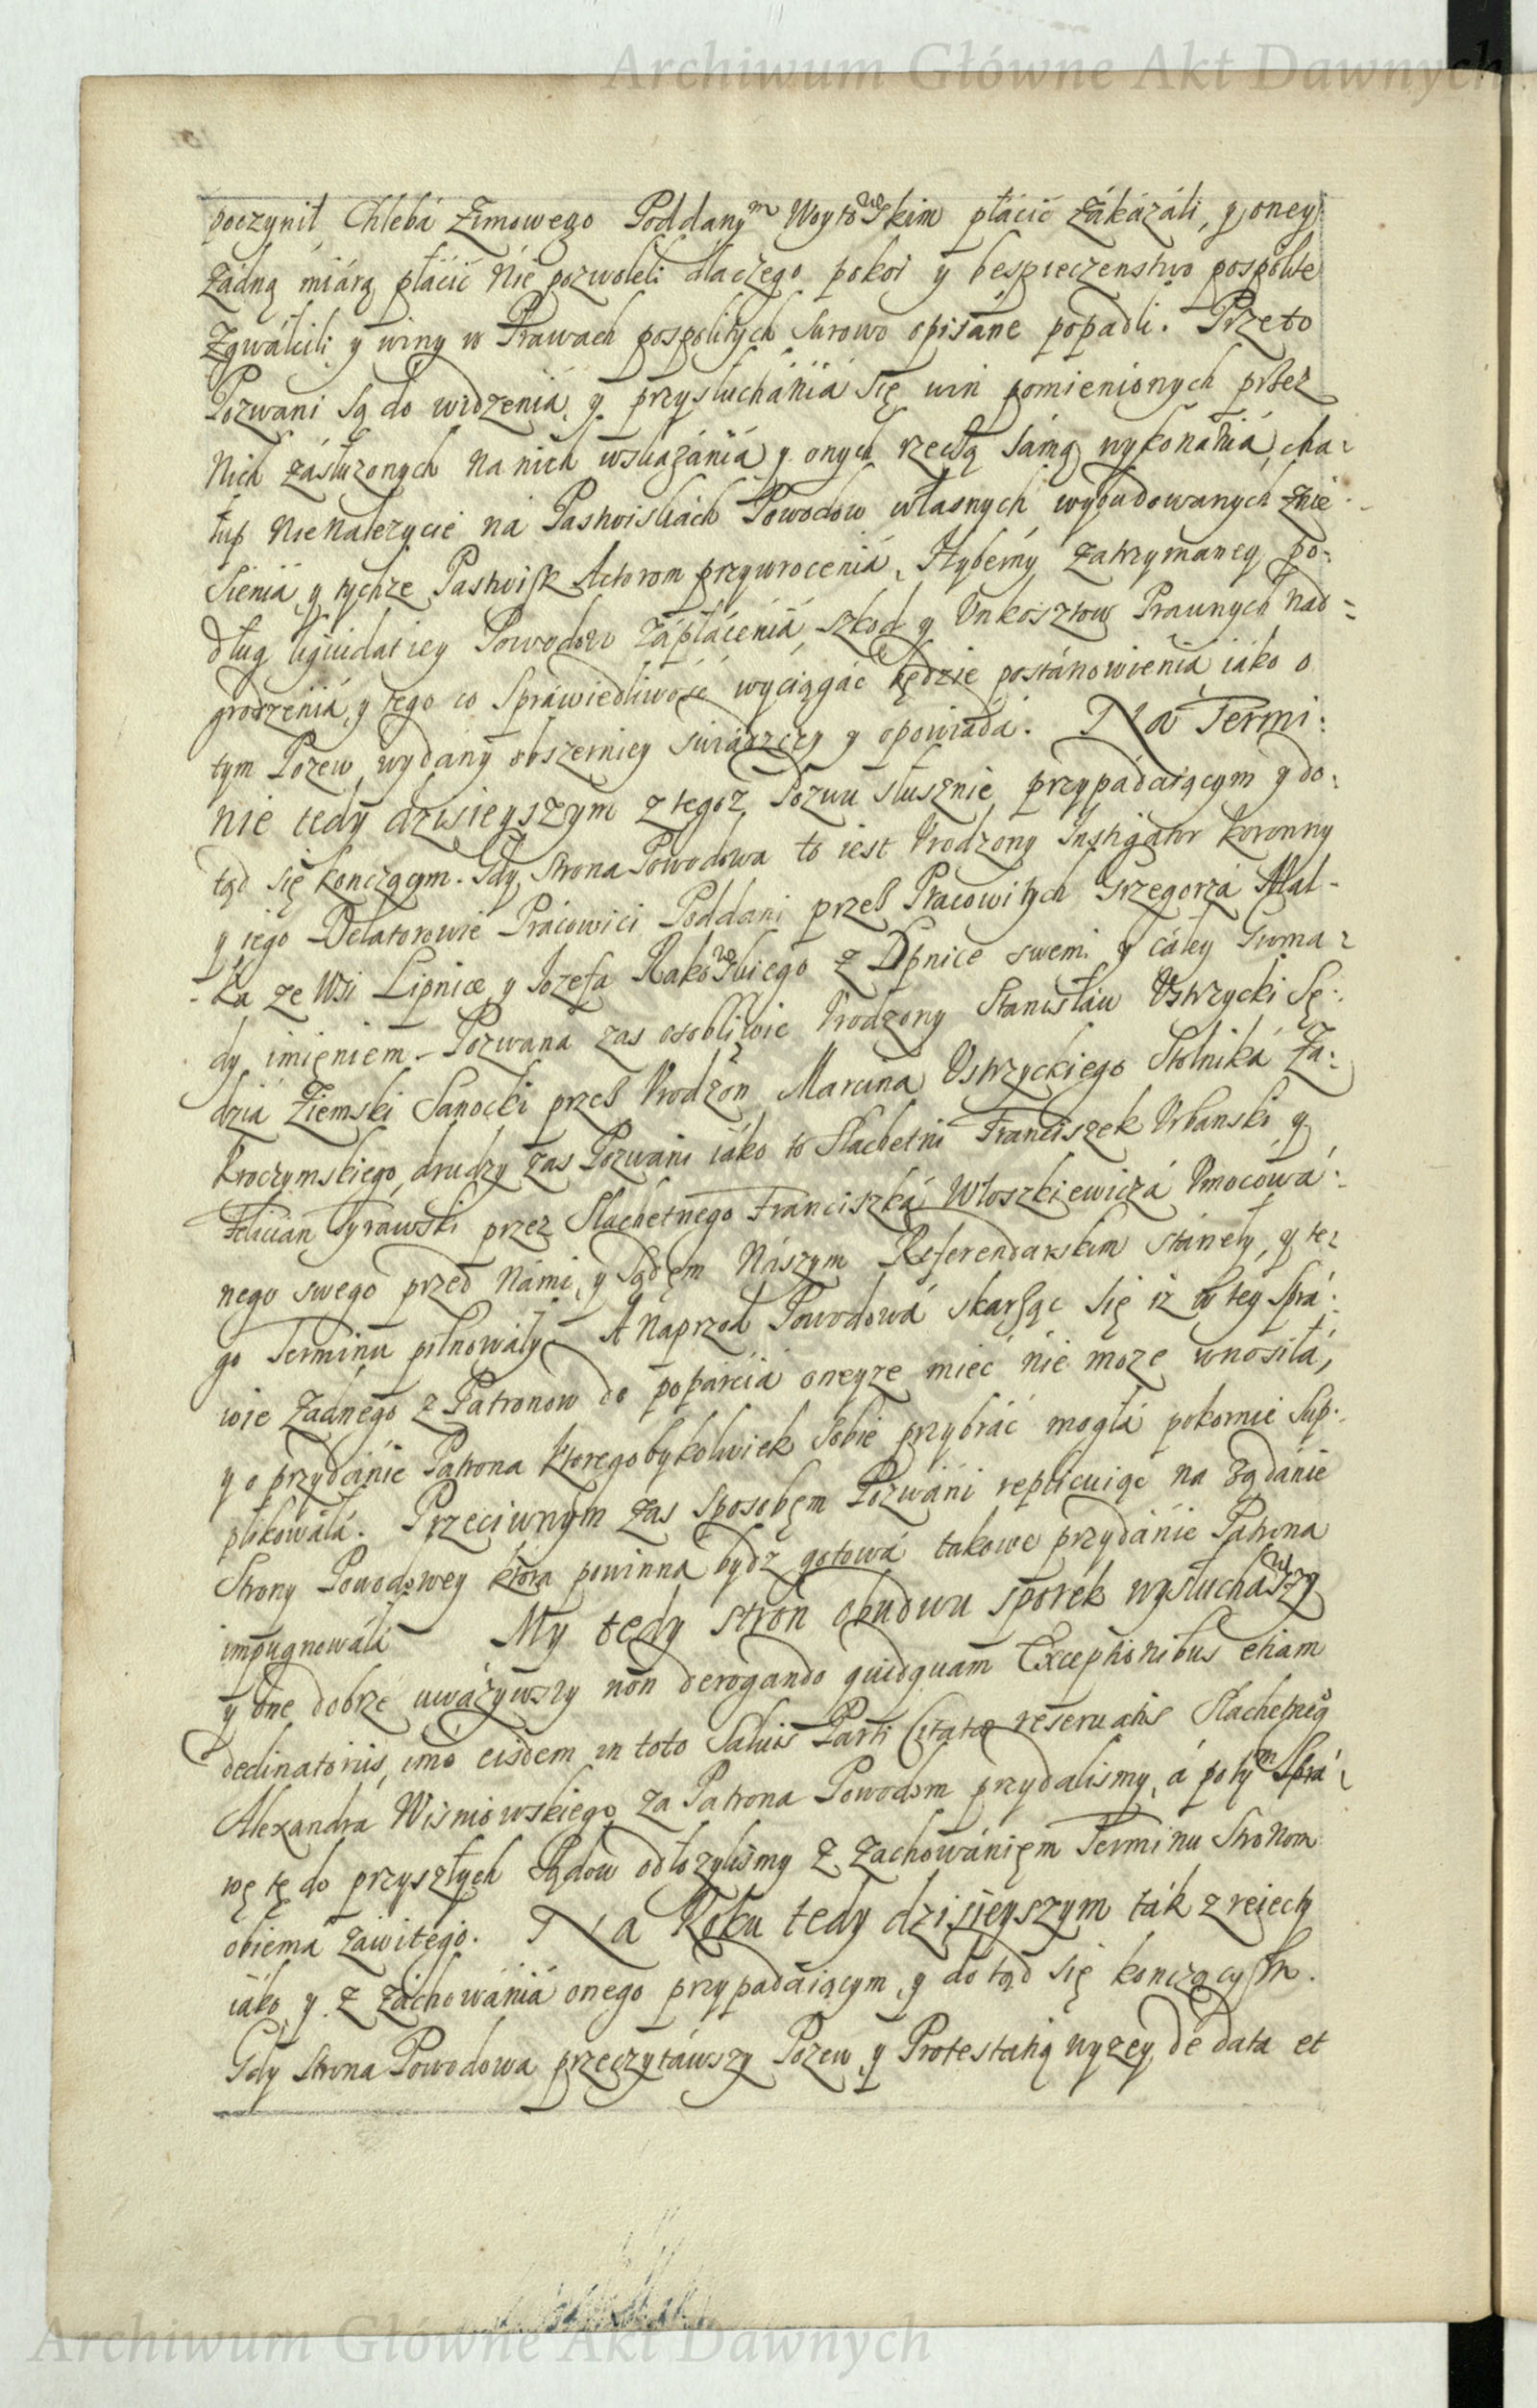 Archiwum Główne Akt Dawnych
poczynił Chlebá Zimowego Poddanym Woytowskim płácić zákázáli, y oney
żadną miárą płácić nie pozwoleli dlaczego pokoi y bespieczenstwo pospolite
zgwáłcili y winy w Prawach pospolitych surowo opisáne popadli. Przeto
Pozwani są do widzeniá y przysłuchániá się win pomienionych przez
nich zásłużonych na nich wskazániá y onych rzeczą sámą wykonániá, cha-
łup nienależycie ná Pastwiskách Powodow własnych wybudowanych znie-
sieniá y tychże Pastwisk Actorom przywroceniá, Hyberny zatrzymaney po-
dług liquidatiey Powodow zápłáceniá, szkod y Unkosztow Prawnych nad-
grodzeniá, y tego co Spráwiedliwość wyciągáć będzie postánowieniá iáko o
tym Pozew wydány obszerniey swiádczy y opowiáda. Na Termi-
nie tedy dzisieyszym z tegoż Pozwu słusznie przypádáiącym y do-
tąd się kończącym. Gdy Strona Powodowa to iest Urodzony Instigator Koronny
y iego Delatorowie Prácowici Poddani przez Pracowitych Grzegorzá Mal-
ka ze Wsi Lipnice y Jozefa Rakowskiego z Lipnice swem y cáłey Groma-
dy imieniem. Pozwana zas osobliwie Urodzony Stanisław Ustrzycki Sę-
dziá Ziemski Sanocki przez Urodzon Marcina Ustrzyckiego Stolniká Za-
kroczymskiego, drudzy zas Pozwani iáko to Slachetni Franciszek Urbanski y
Felician Tyrawski przez Slachetnego Franciszká Włoszkiewiczá Umocowá-
nego swego przed Námi, y Sądem Nászym Referendarskim stánęły, y te-
go Terminu pilnowáły. A naprzod Powodowá skarżąc się iż w tey Sprá-
wie żadnego z Patronow do popárciá oneyże mieć nie może wnosiłá,
y o przydánie Patrona ktoregobykolwiek sobie przybráć mogłá pokornie Sup-
plikowáłá. Przeciwnym zas sposobem Pozwáni replicuiąc na żądánie
Strony Powodowey ktora powinna bydz gotowá takowe przydánie Patrona
impugnowáli My tedy stron obudwu sporek wysłuchawszy
y one dobrze uważywszy non derogando quidquam Exceptionibus etiam
declinatoriis, imo eisdem in toto salvis Parti Citatae reservatis Slachetnego
Alexandra Wisniowskiego za Patrona Powodom przydalismy, á potym Sprá-
wę tę do przyszłych Sądow odłożyliśmy z záchowániem Terminu Stronom
obiema záwitego. Na Roku tedy dzisieyszym ták z reiecty
iáko y z záchowániá onego przypadáiącym, y dotąd się kończącym.
Gdy Strona Powodowa przeczytáwszy Pozew y Protestatią wyżey de data et
Archiwum Główne Akt Dawnych